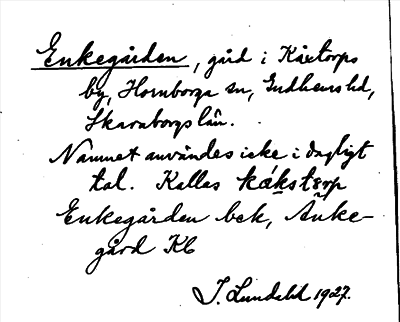 Enkegården, gård i Kåxtorps
by, Hornborga sn, Gudhems hd,
Skaraborgs län.
Namnet användes icke i dagligt
tal. Kallas
Enkegården bek, Änke-
gård Kb
J. Lundahl 1927.